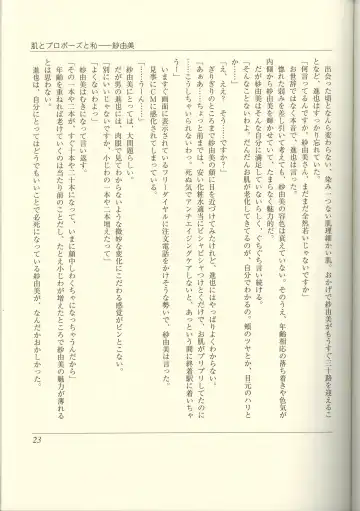 肌とプロポーズと私――紗由美
出会った頃となんら変わらない、染み一つない肌理細かい肌。おかげで紗由美がもうすぐ三十路を迎えるこ
となど、進也はすっかり忘れていた。
「何言ってるんですか。紗由美さん、まだまだ全然若いじゃないですか」
お世辞でもなく本音で、進也は言った。
惚れた弱みを差し引いて考えても、紗由美の容色は衰えていない。そのうえ、年齢相応の落ち着きや色気が
内側から輝きを放っていて、たまらなく魅力的だ。
だが紗由美はそんな自分に満足していないらしく、ぐちぐち言い続ける。
「そんなことないわよ。だんだんお肌が老化してきてるのが、自分でわかるの。頬のツヤとか、目元のハリと
か……」
「え、ええ？　そう……ですか？」
ぎりぎりのところまで紗由美の顔に目を近づけてみたけれど、進也にはやっぱりよくわからない。
「あぁあ……ちょっと前までは、安い化粧水適当にピシャピシャつけとくだけで、お肌がプリプリしてたのに
……こうしちゃいられないわっ。死ぬ気でアンチエイジングケアしないと、あっという間に終着駅に着いちゃ
う……うーん！」
今すぐ画面に表示されているフリーダイヤルに注文電話をかけそうな勢いで、紗由美は言った。
見事にＣＭに感化されてしまっている。
紗由美にとっては、大問題らしい。
だが男の進也には、肉眼で見てわからないような微妙な変化にこだわる感覚がピンとこない。
「別にいいじゃないですか、小じわの一本や二本増えたって」
「よくないわよっ」
紗由美はむきになって言い返す。
「一本や二本が、すぐ十本や二十本になって、いまに顔中しわくちゃになっちゃうんだから」
年齢を重ねれば老けていくのは当たり前のことだし、たとえ小じわが増えたところで紗由美の魅力が薄れる
とは思わない。
進也は、自分にとってはどうでもいいことで必死になっている紗由美が、なんだかおかしかった。
23